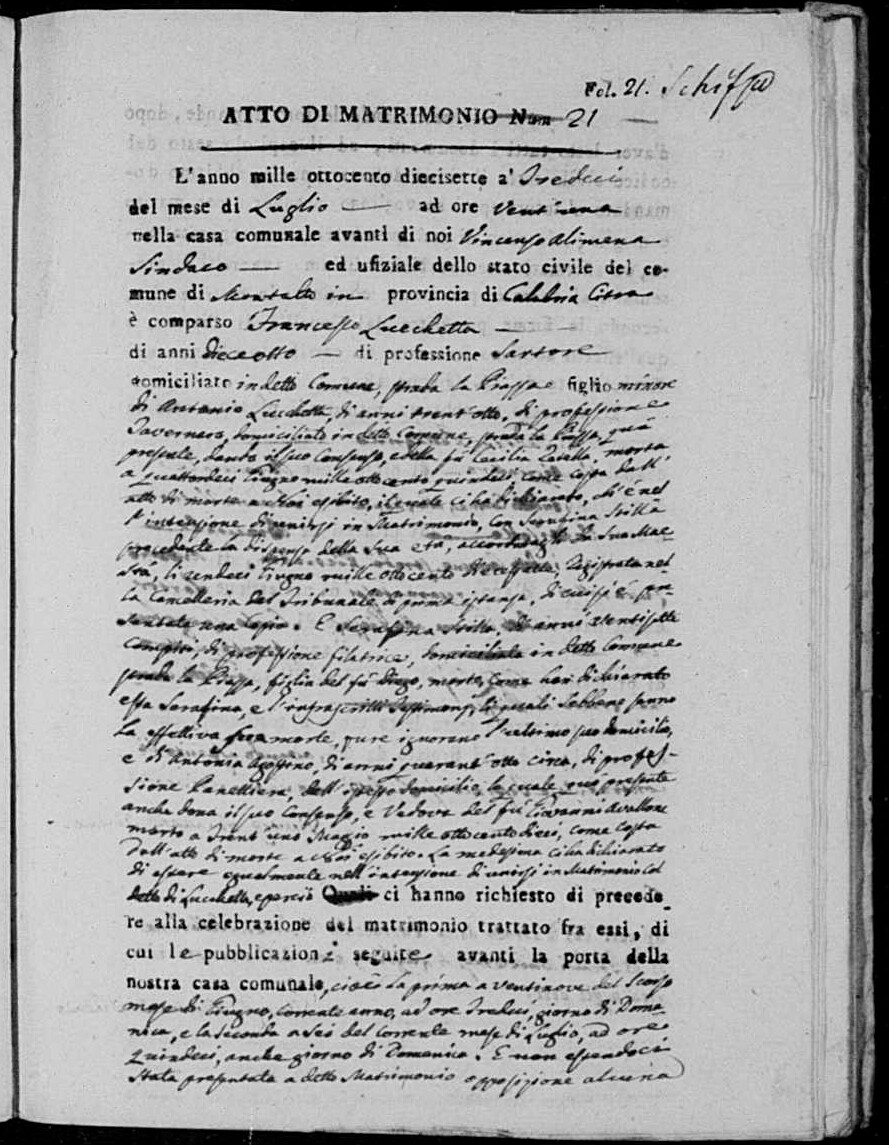 Fol. 21. Schifso
ATTO DI MATRIMONIO Num 21
L'anno mille ottocento diecisette a' Tredeci
del mese di Luglio ad ore Vent'una
nella casa comunale avanti di noi Vincenzo Alimena
Sindaco ed ufiziale dello stato civile del co-
mune di Montalto in provincia di Calabria Citra
è comparso Francesco Lucchetta
di anni dieceotto di professione Sartore
domiciliato in detto Comune, strada la Piazza figlio minore
di Antonio Lucchetta, di anni trent'otto, di professione
Tavernaro, domiciliato in detto Comune, strada la Piazza, quà
presente, dando il suo Consenso, e della fù Cecilia morta
a quattordeci Giugno mille ottocento quindeci, come costa dall'
atto di morte a Noi esibito, il quale ci ha dichiarato, ch'è nel
l'intenzione di unirsi in Matrimonio, con Serafina Stilla
precedente la dispensa della Sua età, accordatagli da Sua Mae
stà, li undeci Giugno mille ottocento diecesette, registrata nel
la Cancelleria del Tribunale di prima istanza, di cui si è pre-
sentata una copia. E Serafina Stilla, di anni ventisette
compiti, di professione filatrice, domiciliata in detto Comune
strada la Piazza, figlia del fù Diego, morto, come han dichiarato
essa Serafina, e l'infrascritti Testimonj, li quali sebbene sanno
la effettiva sua morte, pure ignorano l'ultimo suo domicilio,
e di Antonia Agostino, di anni quarant'otto circa, di profes-
sione Panettiera, dell'istesso domicilio, la quale quà presente
anche dona il suo Consenso, e Vedova del fù Giovanni Avallone
morto a Trent'uno Maggio mille ottocento dieci, come costa
dall'atto di morte a Noi esibito. La medesima ci ha dichiarato
di essere egualmente nell'intenzione di unirsi in Matrimonio col
detto di Lucchetta, e perciò Quali ci hanno richiesto di precede-
re alla celebrazione del matrimonio trattato fra essi, di
cui le pubblicazioni seguite avanti la porta della
nostra casa comunale, cioè la prima a ventinove del Scorso
mese di Giugno, corrente anno, ad ore Tredeci, giorno di Dome
nica, e la seconda a Sei del corrente mese di Luglio, ad ore
quindeci, anche giorno di Domenica. E non essendoci
stata presentata a detto Matrimonio opposizione alcuna